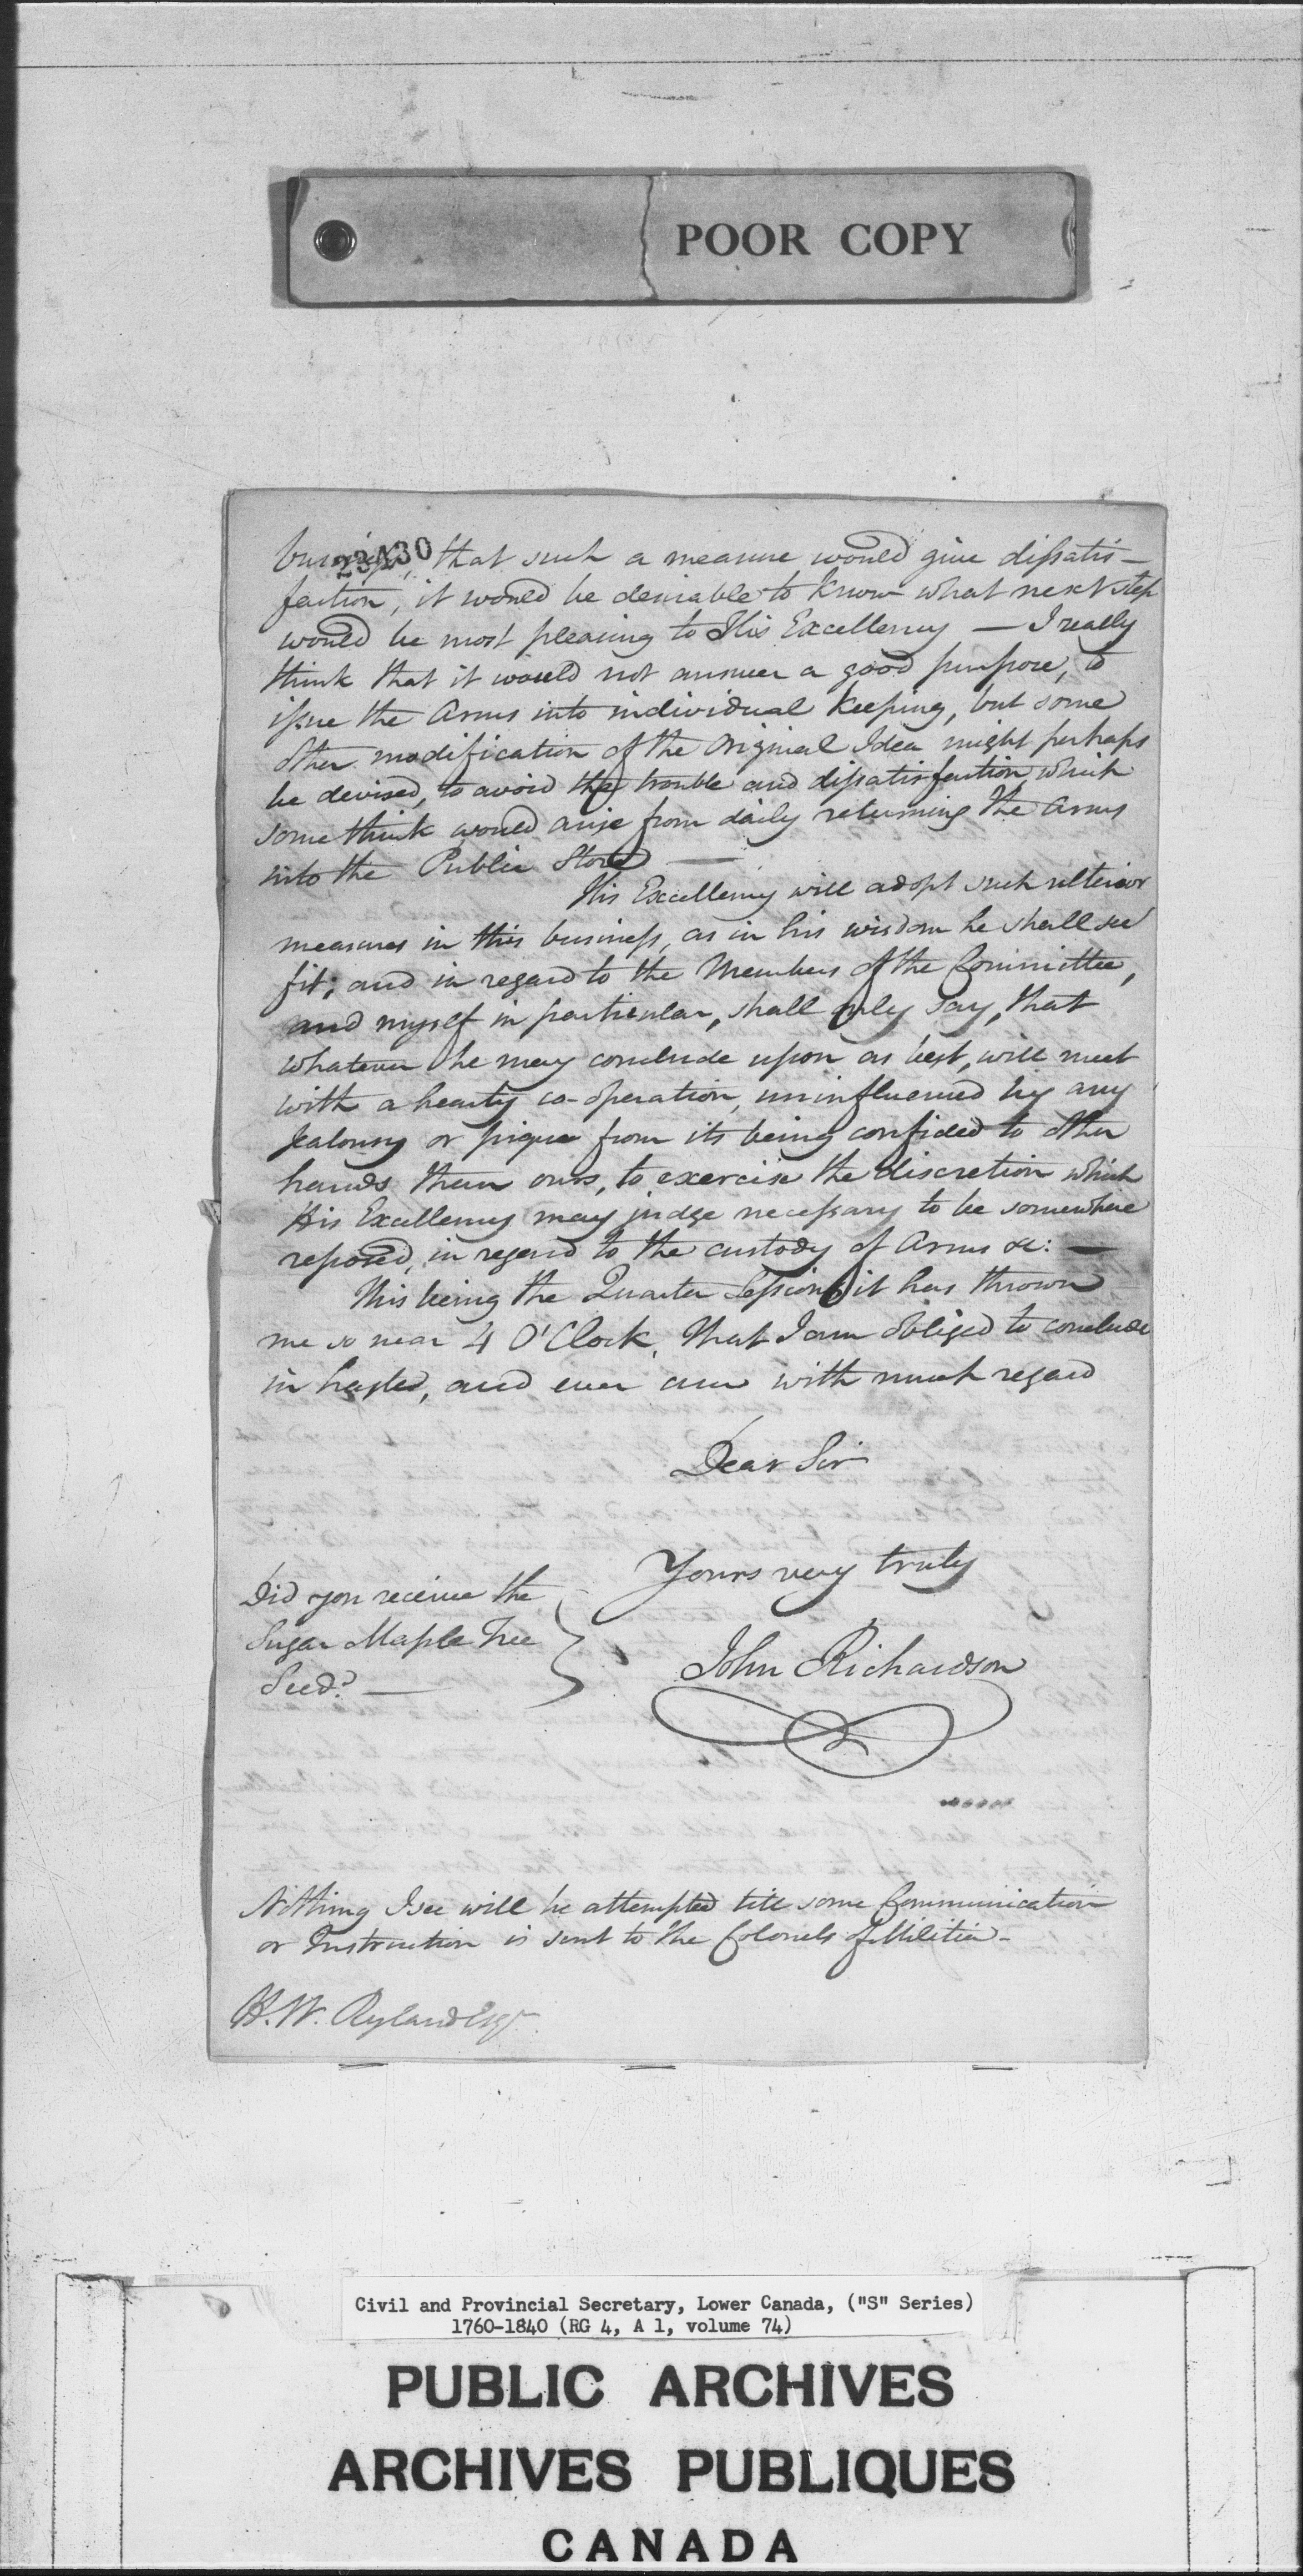 POOR COPY
23430
business, that such a measure would give dissatis-
faction, it would be desirable to know what next step
would be most pleasing to His Excellency — I really
think that it would not answer a good purpose, to
issue the Arms into individual keeping, but some
other modification of the Original Idea might perhaps
be devised, to avoid the trouble and dissatisfaction which
some think would arise from daily returning the Arms
into the Public Store —
His Excellency will adopt such ulterior
measures in this business, as in his wisdom he shall see
fit; and in regard to the Members of the Committee,
and myself in particular, shall only say, that
whatever he may conclude upon as best, will meet
with a hearty co-operation, uninfluenced by any
Jealousy or pique from its being confided to other
hands than ours, to exercise the discretion which
His Excellency may judge necessary to be somewhere
reposed, in regard to the custody of Arms &c: —
This being the Quarter Sessions, it has thrown
me so near 4 O'Clock, that I am obliged to conclude
in haste, and ever am with much regard
Dear Sir
Yours very truly
John Richardson
Did you receive the
Sugar Maple Tree
Seed? —
Nothing I see will be attempted till some Communication
or Instruction is sent to the Colonels of Militia -
H. W. Ryland Esqr.
Civil and Provincial Secretary, Lower Canada, ("S" Series)
1760-1840 (RG 4, A 1, volume 74)
PUBLIC ARCHIVES
ARCHIVES PUBLIQUES
CANADA